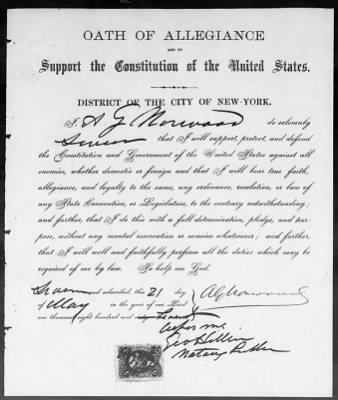 OATH OF ALLEGIANCE
AND TO
Support the Constitution of the United States.
DISTRICT OF THE CITY OF NEW-YORK.
I, A G Norwood do solemnly
Swear that I will support, protect, and defend
the Constitution and Government of the United States against all
enemies, whether domestic or foreign and that I will bear true faith,
allegiance, and loyalty to the same, any ordinance, resolution, or law of
any State Convention, or Legislature, to the contrary notwithstanding;
and further, that I do this with a full determination, pledge, and pur-
pose, without any mental reservation or evasion whatsoever; and further,
that I will well and faithfully perform all the duties which may be
required of me by law. So help me God.
Sworn and subscribed this 21 day
of May in the year of our Lord
A G Norwood
one thousand eight hundred and
before me
Notary Public